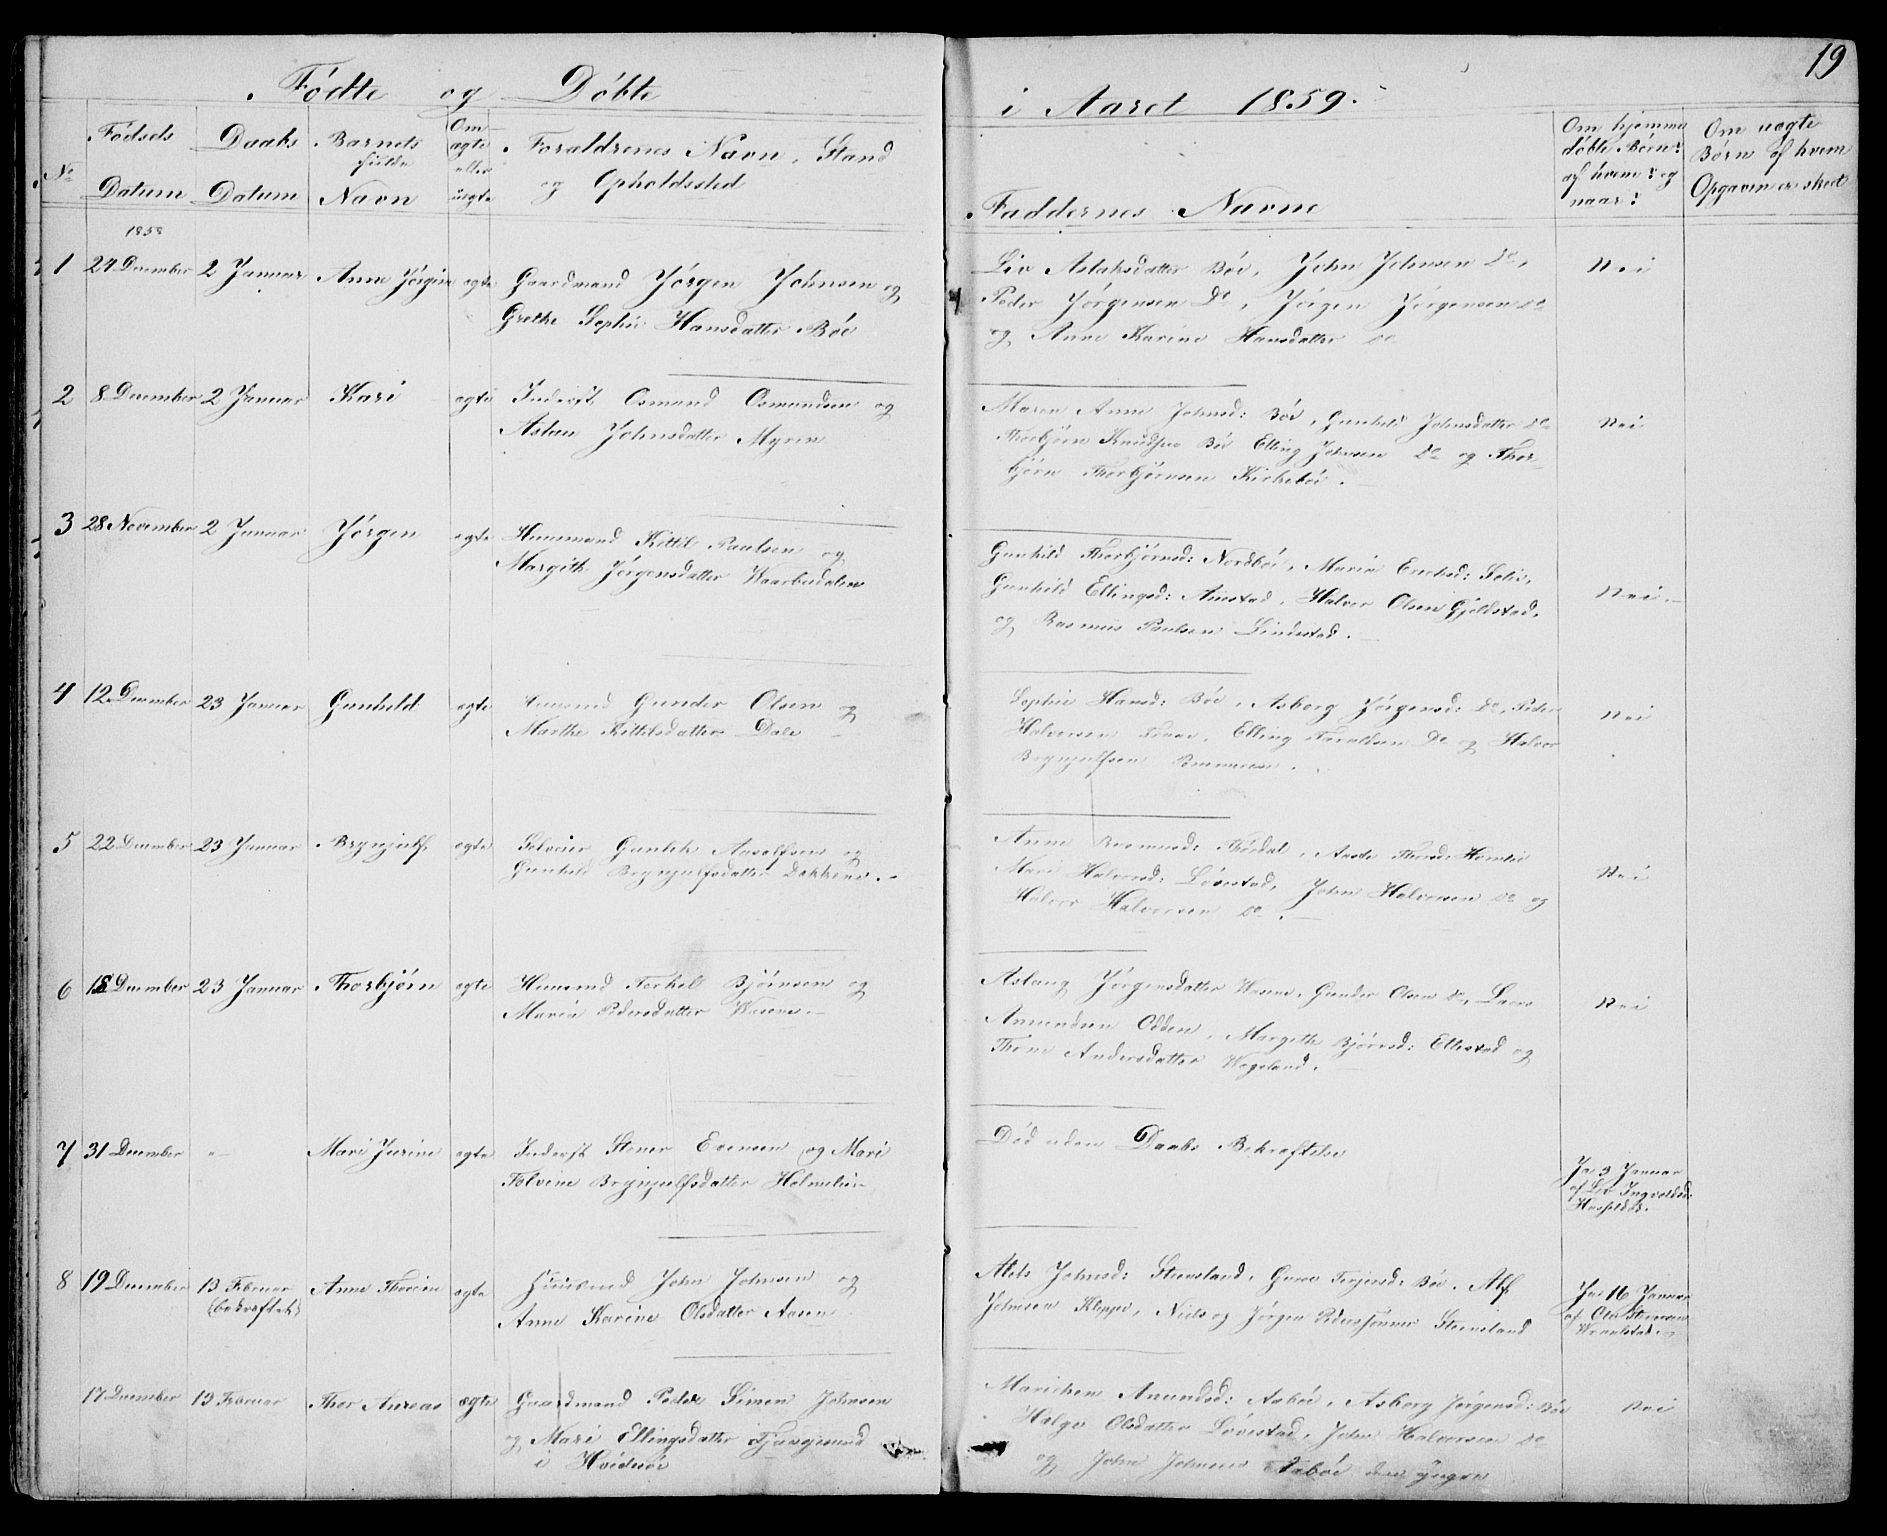 19
Fødte og Døbte
i Aaret 1859.
No
Fødsels Datum
Daabs Datum
Barnets fulde Navn
Om ægte eller uægte
Forældrenes Navn, Stand
og Opholdssted
Faddernes Navne
Om hjemme
døbte Børn:
af hvem? og
naar?
Om uægte
Børn af hvem
Opgaven er skeet
1858
1 24 December 2 Januar Anne Jørgine ægte Gaardmand Jørgen Johnsen og
Grethe Sophie Hansdatter Bøe
Liv Aslaksdatter Bøe, John Johnsen Do,
Peder Jørgensen Do, Jørgen Jørgensen Do
og Anne Karine Hansdatter Do
Nei
2 8 December 2 Januar Kari ægte Inderst Osmund Osmundsen og
Aslau Johnsdatter Myren
Maren Anne Johnsd: Bøe, Gunhild Johnsdatter Do
Thorbjørn Knudsen Bøe Elling Johnsen Do og Thor-
bjørn Thorbjørnsen Kirkebøe.
Nei
3 28 November 2 Januar Jørgen ægte Huusmand Kittil Paulsen og
Margith Jørgensdatter Waarbudalen
Gunhild Thorbjørnsd: Nordbøe, Maria Erichsd: Solie,
Gunhild Ellingsd: Amstad, Halvor Olsen Gjeldstad,
og Rasmus Paulsen Lindestad.
Nei.
4 12 December 23 Januar Gunhild ægte Huusmd Gunder Olsen og
Marthe Kittilsdatter Dale
Sophie Hansd: Bøe, Asborg Jørgensd: Do, Peder
Halvorsen, Elling Taraldsen Do og Halvor
Brynjulfsen
Nei
5 22 December 23 Januar Brynjulf ægte Selveier Gunlek Ansolfsen og
Gunhild Brynjulfsdatter Dokkene.
Anne Rasmusd:
Mari Halvorsd: Løvestad, John Halvorsen Do og
Halvor Halvorsen Do.
Nei
6 18 December 23 Januar Thorbjørn ægte Huusmd Terkel Bjørnsen og
Maria Pedersdatter Wasene.
Aslaug Jørgensdatter Wasene, Gunder Olsen Do, Lars
Amundsen Odden, Margith Bjørnsd: Ellestad og
Thone Andersdatter Wegeland.
Nei
7 31 December " Mari Jurine ægte Inderst Stener Evensen og Mari
Tolvine Brynjulfsdatter Holmelien
Død uden Daabs Bekræftelse
Ja 3 Januar
af Liv Ingvoldsd:
8 19 December 13 Februar
(bekræftet) Anne Thorine ægte Huusmd John Johnsen og
Anne Karine Olsdatter Aasen
Alets Johnsd: Steensland, Guro Terjersd: Bøe, Alf
Johnsen Kleppe, Niels og Jørgen Pederssønner Steensland
Ja 16 Januar
af Ole Stenersen
Wraalstad.
17 December 13 Februar Thor Anreas ægte Gaardmand Peder Simen Johnsen
og Mari Ellingsdatter
i Hvidesøe
Marichen Amundsd: Aabøe, Asborg Jørgensd: Bøe
Helge Olsdatter Løvestad, John Halvorsen Do
og John Johnsen Aabøe den yngre
Nei